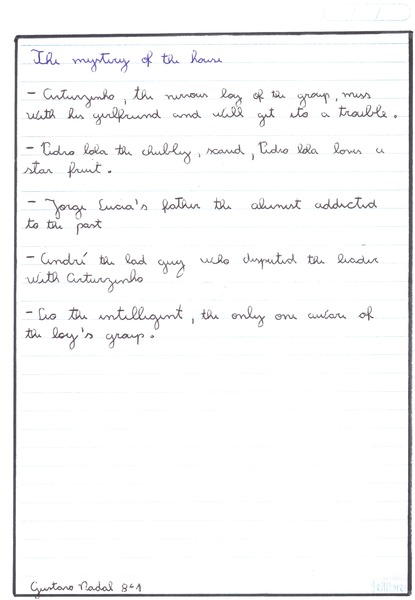 The mystery of the house
- Arturzinho, the nervous boy of the group, miss
with his girlfriend and will get into a trouble.
- Pedro bola the chubby, scared, Pedro bola loves a
star fruit.
- Jorge Lucia's father the alumist addicted
to the past
- André the bad guy who disputed the leader
with Arturzinho
- Leo the intelligent, the only one aware of
the boy's group.
Gustavo Nadal 8ª1